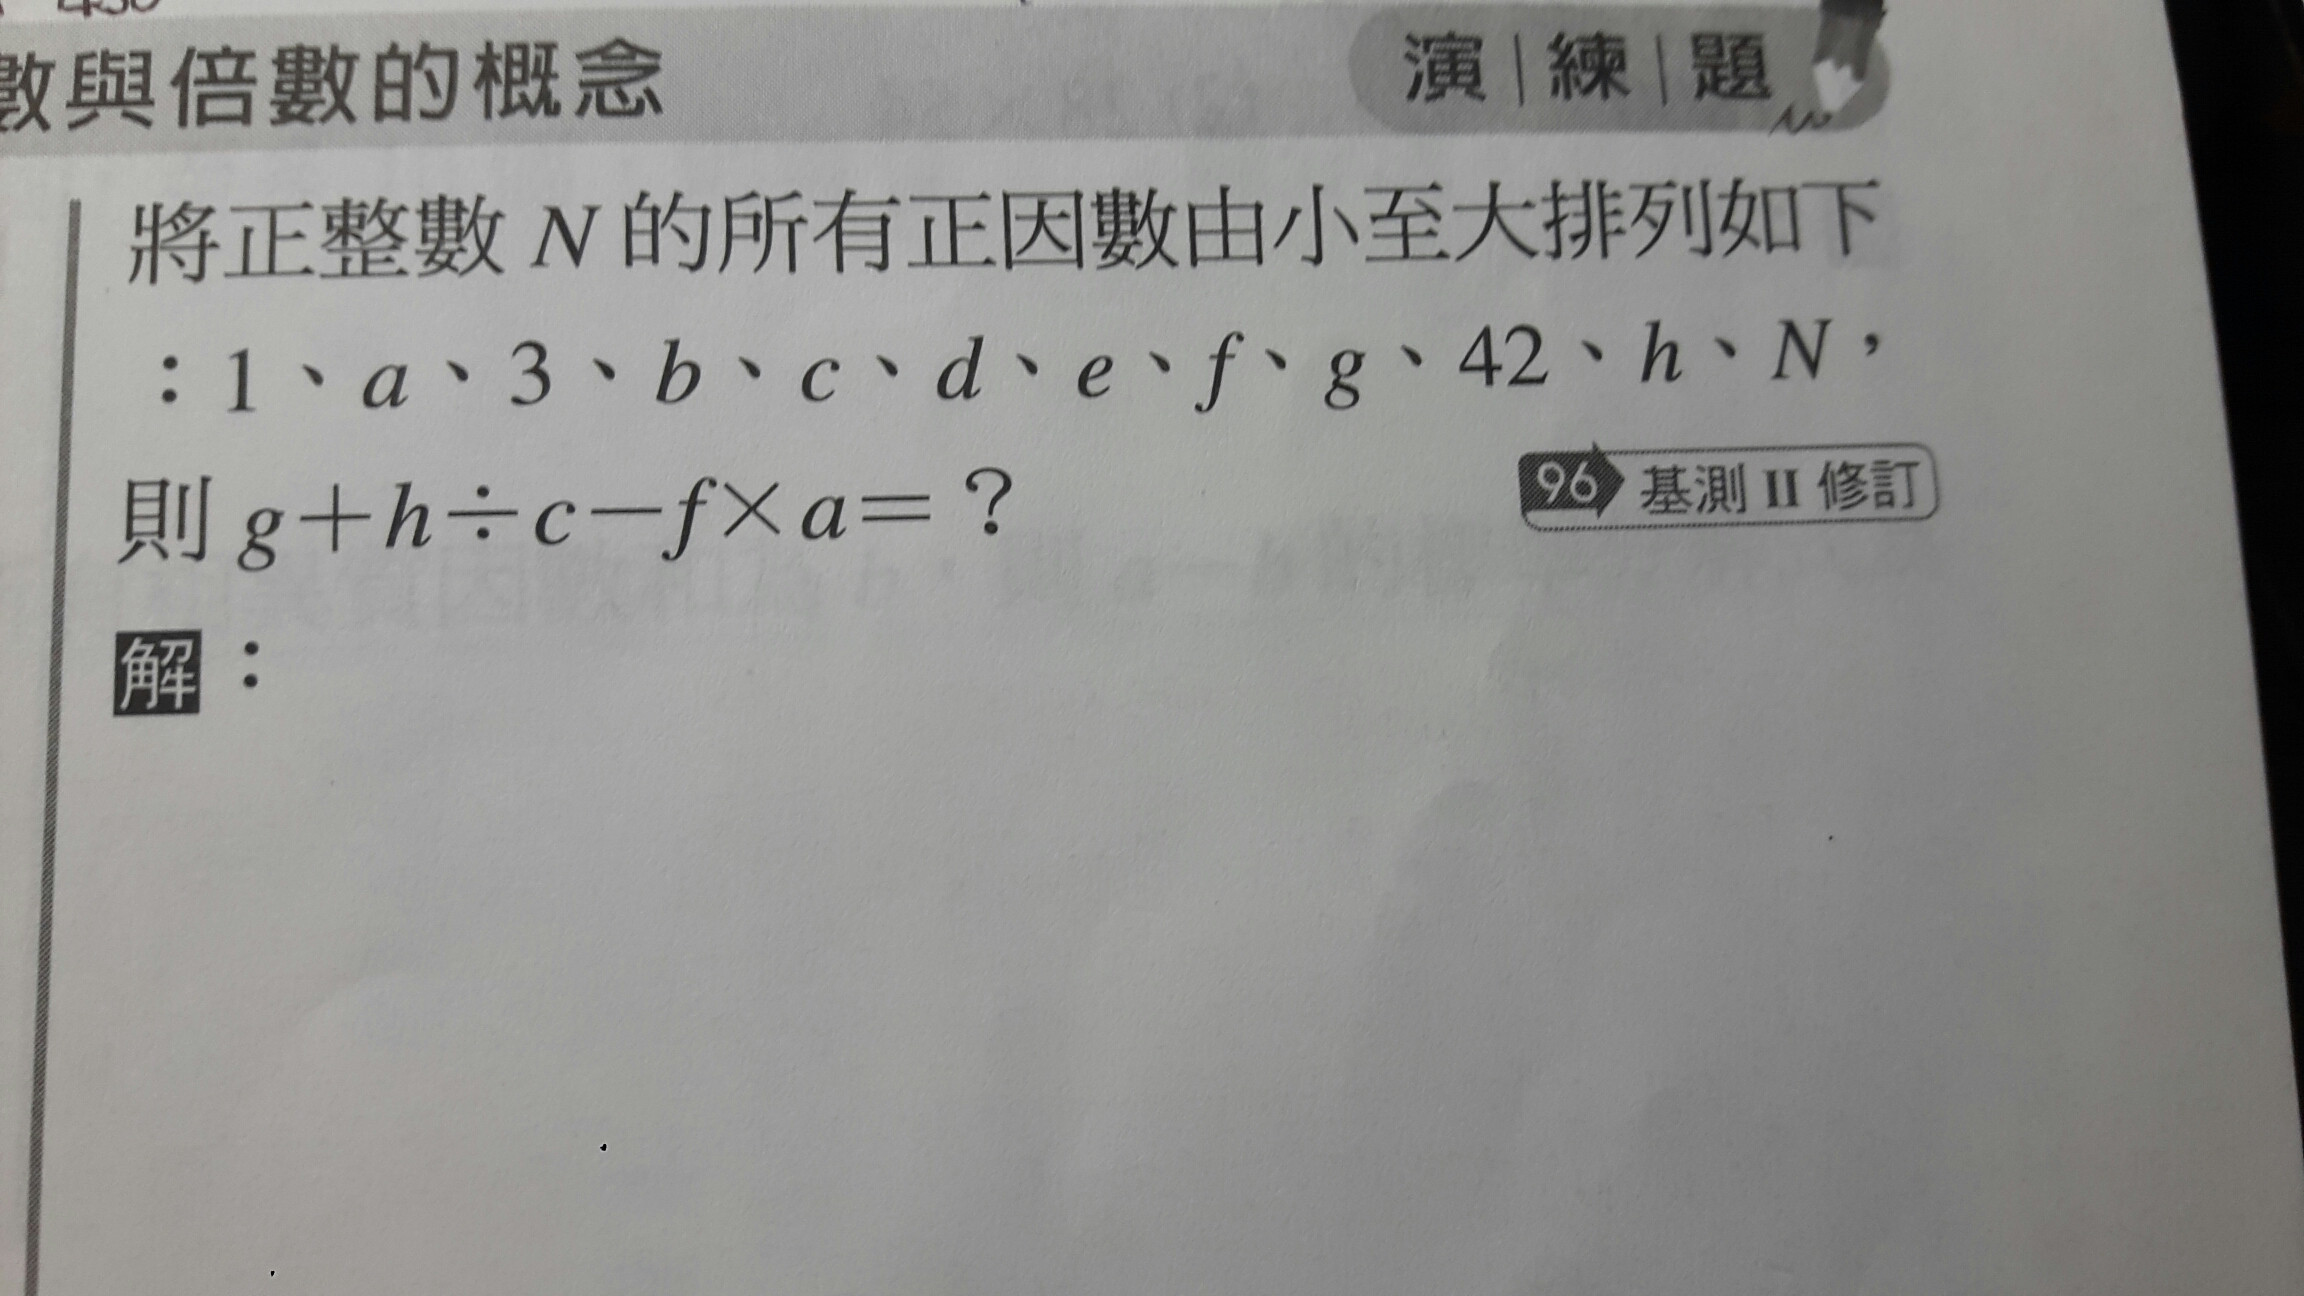 數與倍數的概念
演|練|題
將正整數 N 的所有正因數由小至大排列如下
：1、a、3、b、c、d、e、f、g、42、h、N，
則 g＋h÷c－f×a＝？
96 基測 II 修訂
解：